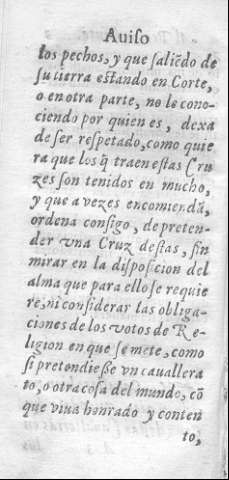 Auiſo
los pechos, y que ſaliẽdo de
ſu tierra eſtando en Corte,
o en otra parte, no le cono-
ciendo por quien es, dexa
de ſer reſpetado, como quie
ra que los q̃ traen eſtas Cru
zes ſon tenidos en mucho,
y que a vezes encomiendã,
ordena conſigo, de preten-
der vna Cruz deſtas, ſin
mirar en la diſpoſicion del
alma que para ello ſe requie
re, ni conſiderar las obliga-
ciones de los votos de Re-
ligion en que ſe mete, como
ſi pretendieſſe vn cauallera
to, o otra coſa del mundo, cõ
que viua honrado y conten
to,